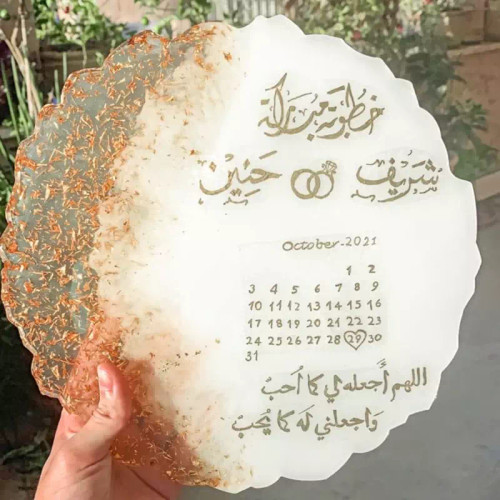 خطوبة مباركة
شَرِيف حَنِين
October-2021
1 2
3 4 5 6 7 8 9
10 11 12 13 14 15 16
17 18 19 20 21 22 23
24 25 26 27 28 29 30
31
اللهم أَجعله لي كما أُحبُ
وَاجعلني لَه كما يُحِبُ